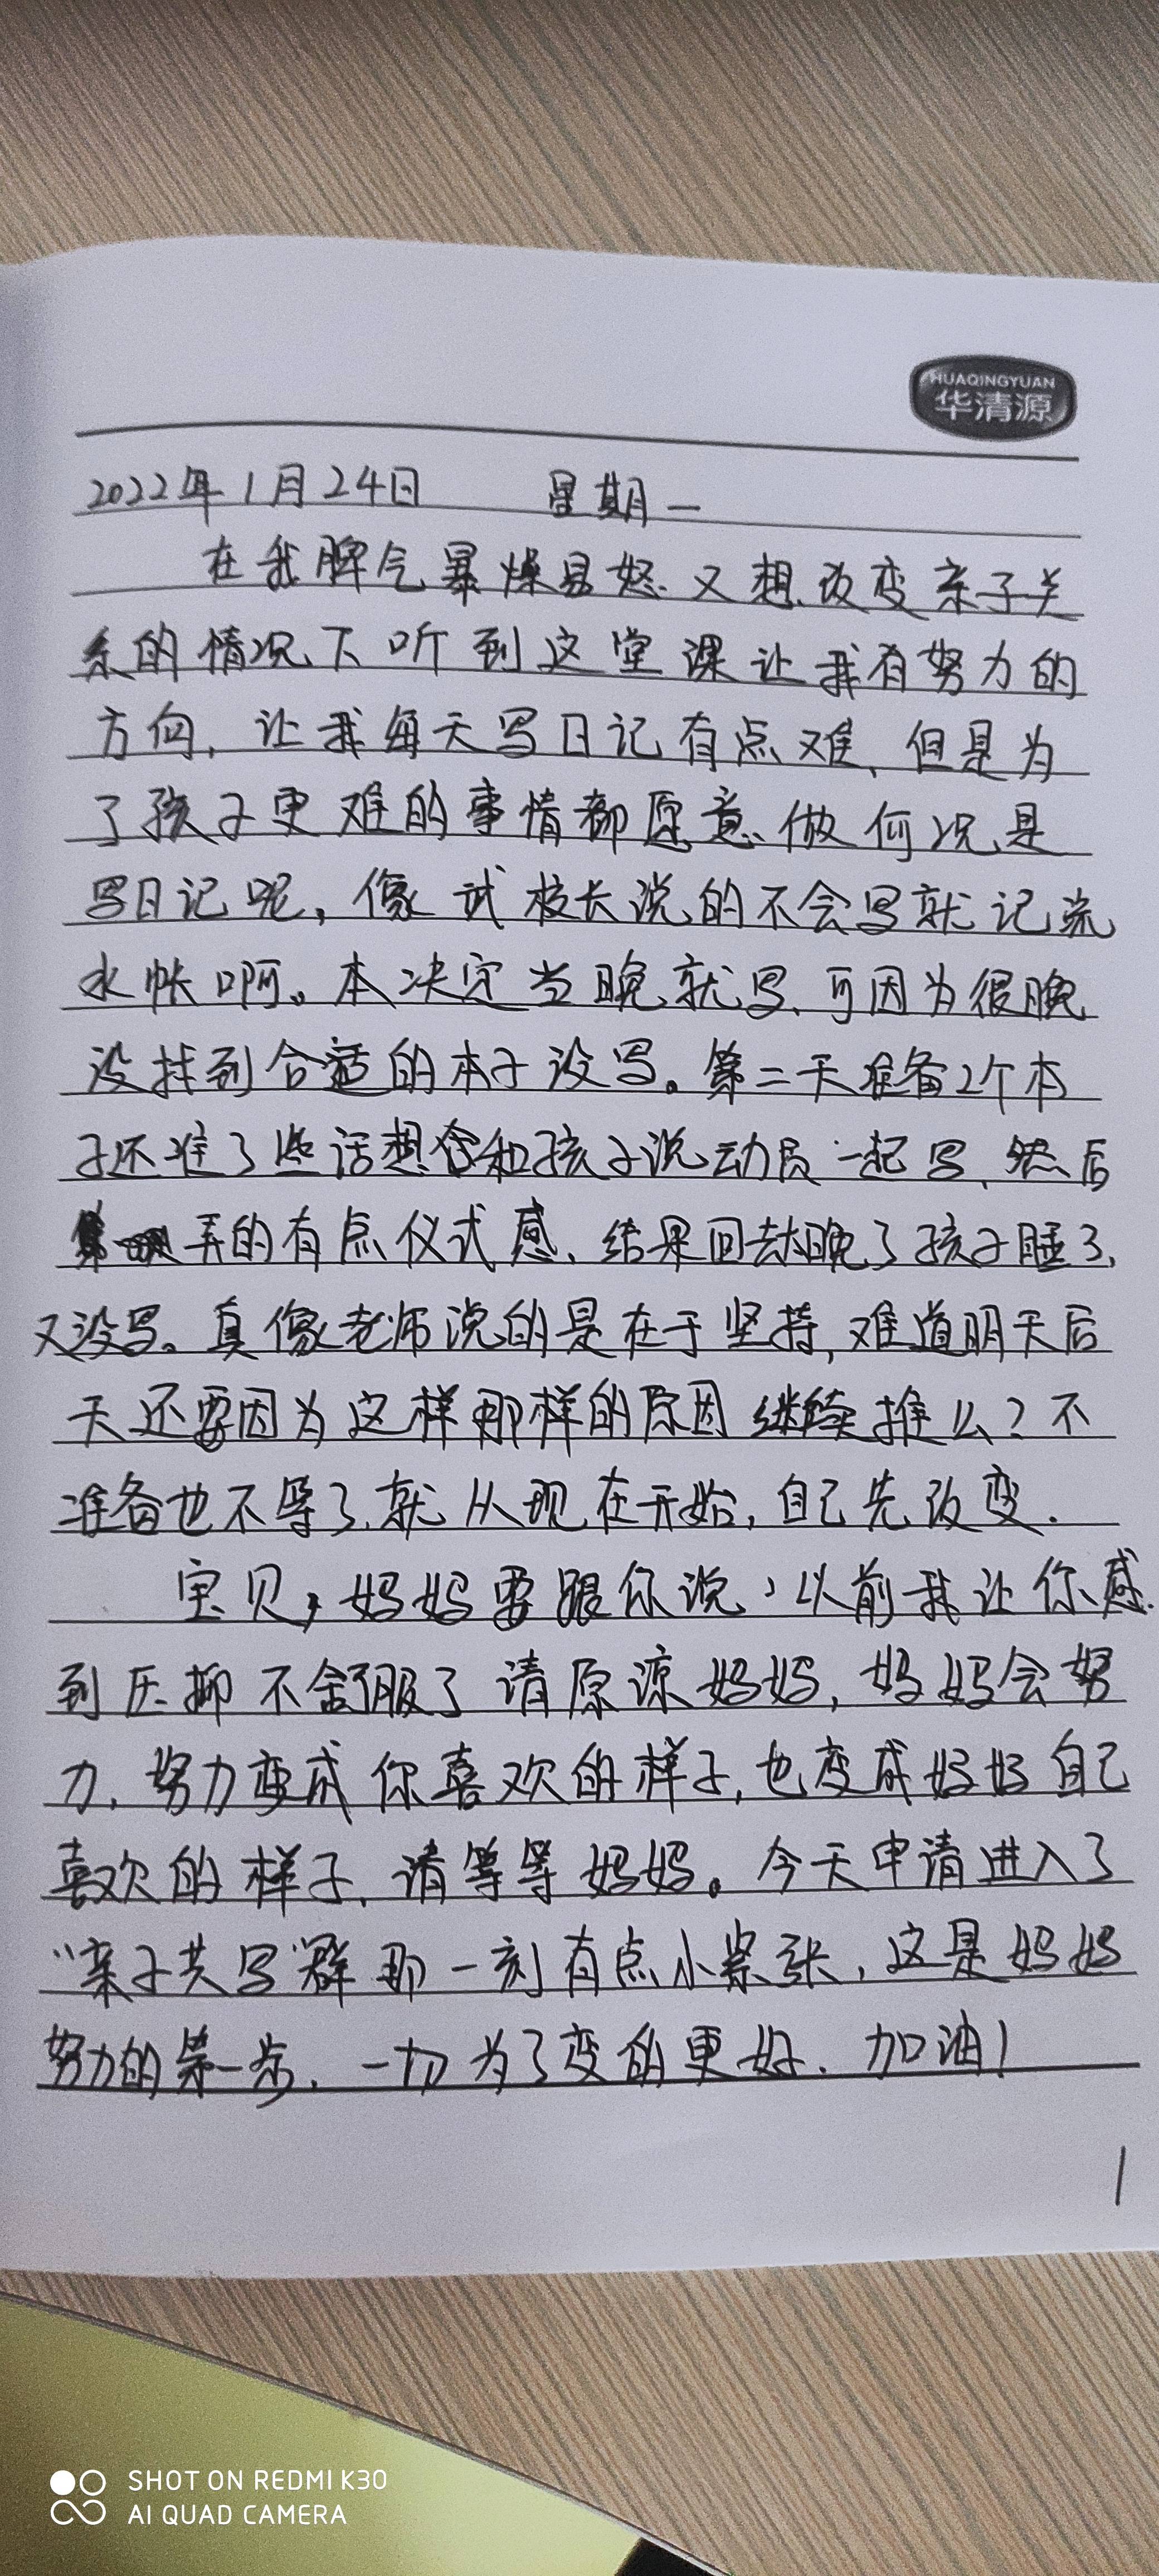 HUAQINGYUAN
华清源
2022年1月24日 星期一
在我脾气暴燥易怒又想改变亲子关
系的情况下听到这堂课让我有努力的
方向，让我每天写日记有点难，但是为
了孩子更难的事情都愿意做何况是
写日记呢，像武校长说的不会写就记流
水帐啊。本决定当晚就写，可因为很晚
没找到合适的本子没写。第二天准备2个本
子还准了些话想和孩子说动员一起写，然后
弄的有点仪式感，结果回去太晚了孩子睡了，
又没写。真像老师说的是在于坚持，难道明天后
天还要因为这样那样的原因继续推么？不
准备也不等了，就从现在开始，自己先改变.
宝贝，妈妈要跟你说，以前我让你感
到压抑不舒服了请原谅妈妈，妈妈会努
力，努力变成你喜欢的样子，也变成妈妈自己
喜欢的样子，请等等妈妈。今天申请进入了
“亲子共写”群那一刻有点小紧张，这是妈妈
努力的第一步，一切为了变的更好.加油！
1
SHOT ON REDMI K30
AI QUAD CAMERA